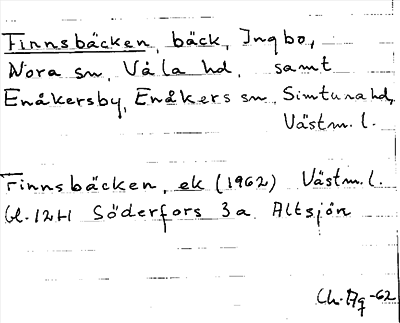 Finnsbäcken, bäck, Ingbo,
Nora sn, Våla hd, samt
Enåkersby, Enåkers sn, Simtuna hd,
Västm. l.
Finnsbäcken, ek (1962) Västm. l.
Gl. 12H Söderfors 3a Altsjön
Ch. Hg-62